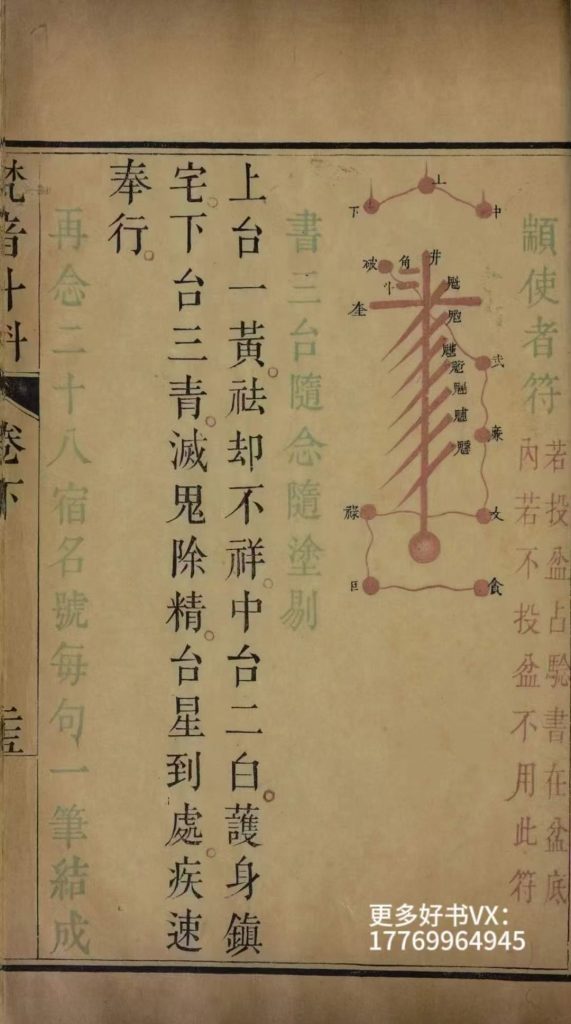 顓使者符
若投盆占驗書在盆底
內若不投盆不用此符
上
下
中
井
角
破
斗
奎
武
廉
文
祿
巨
食
書三台隨念隨塗剔
上台一黃。祛却不祥。中台二白。䕶身鎮
宅。下台三青。滅鬼除精。台星到處。疾速
奉行。
再念二十八宿名號每句一筆結成
梵音斗科
卷下
更多好书VX：
17769964945